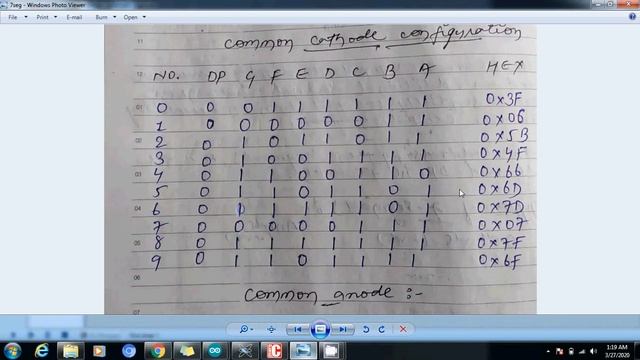 7seg - Windows Photo Viewer
File Print E-mail Burn Open
common cathode configuration
NO. DP G F E D C B A HEX
0 0 0 1 1 1 1 1 1 0x3F
1 0 0 0 0 0 0 1 1 0x06
2 0 1 0 1 1 0 1 1 0x5B
3 0 1 0 0 1 1 1 1 0x4F
4 0 1 1 0 0 1 1 0 0x66
5 0 1 1 0 1 1 0 1 0x6D
6 0 1 1 1 1 1 0 1 0x7D
7 0 0 0 0 0 1 1 1 0x07
8 0 1 1 1 1 1 1 1 0x7F
9 0 1 1 0 1 1 1 1 0x6F
common anode :-
1:19 AM
3/27/2020